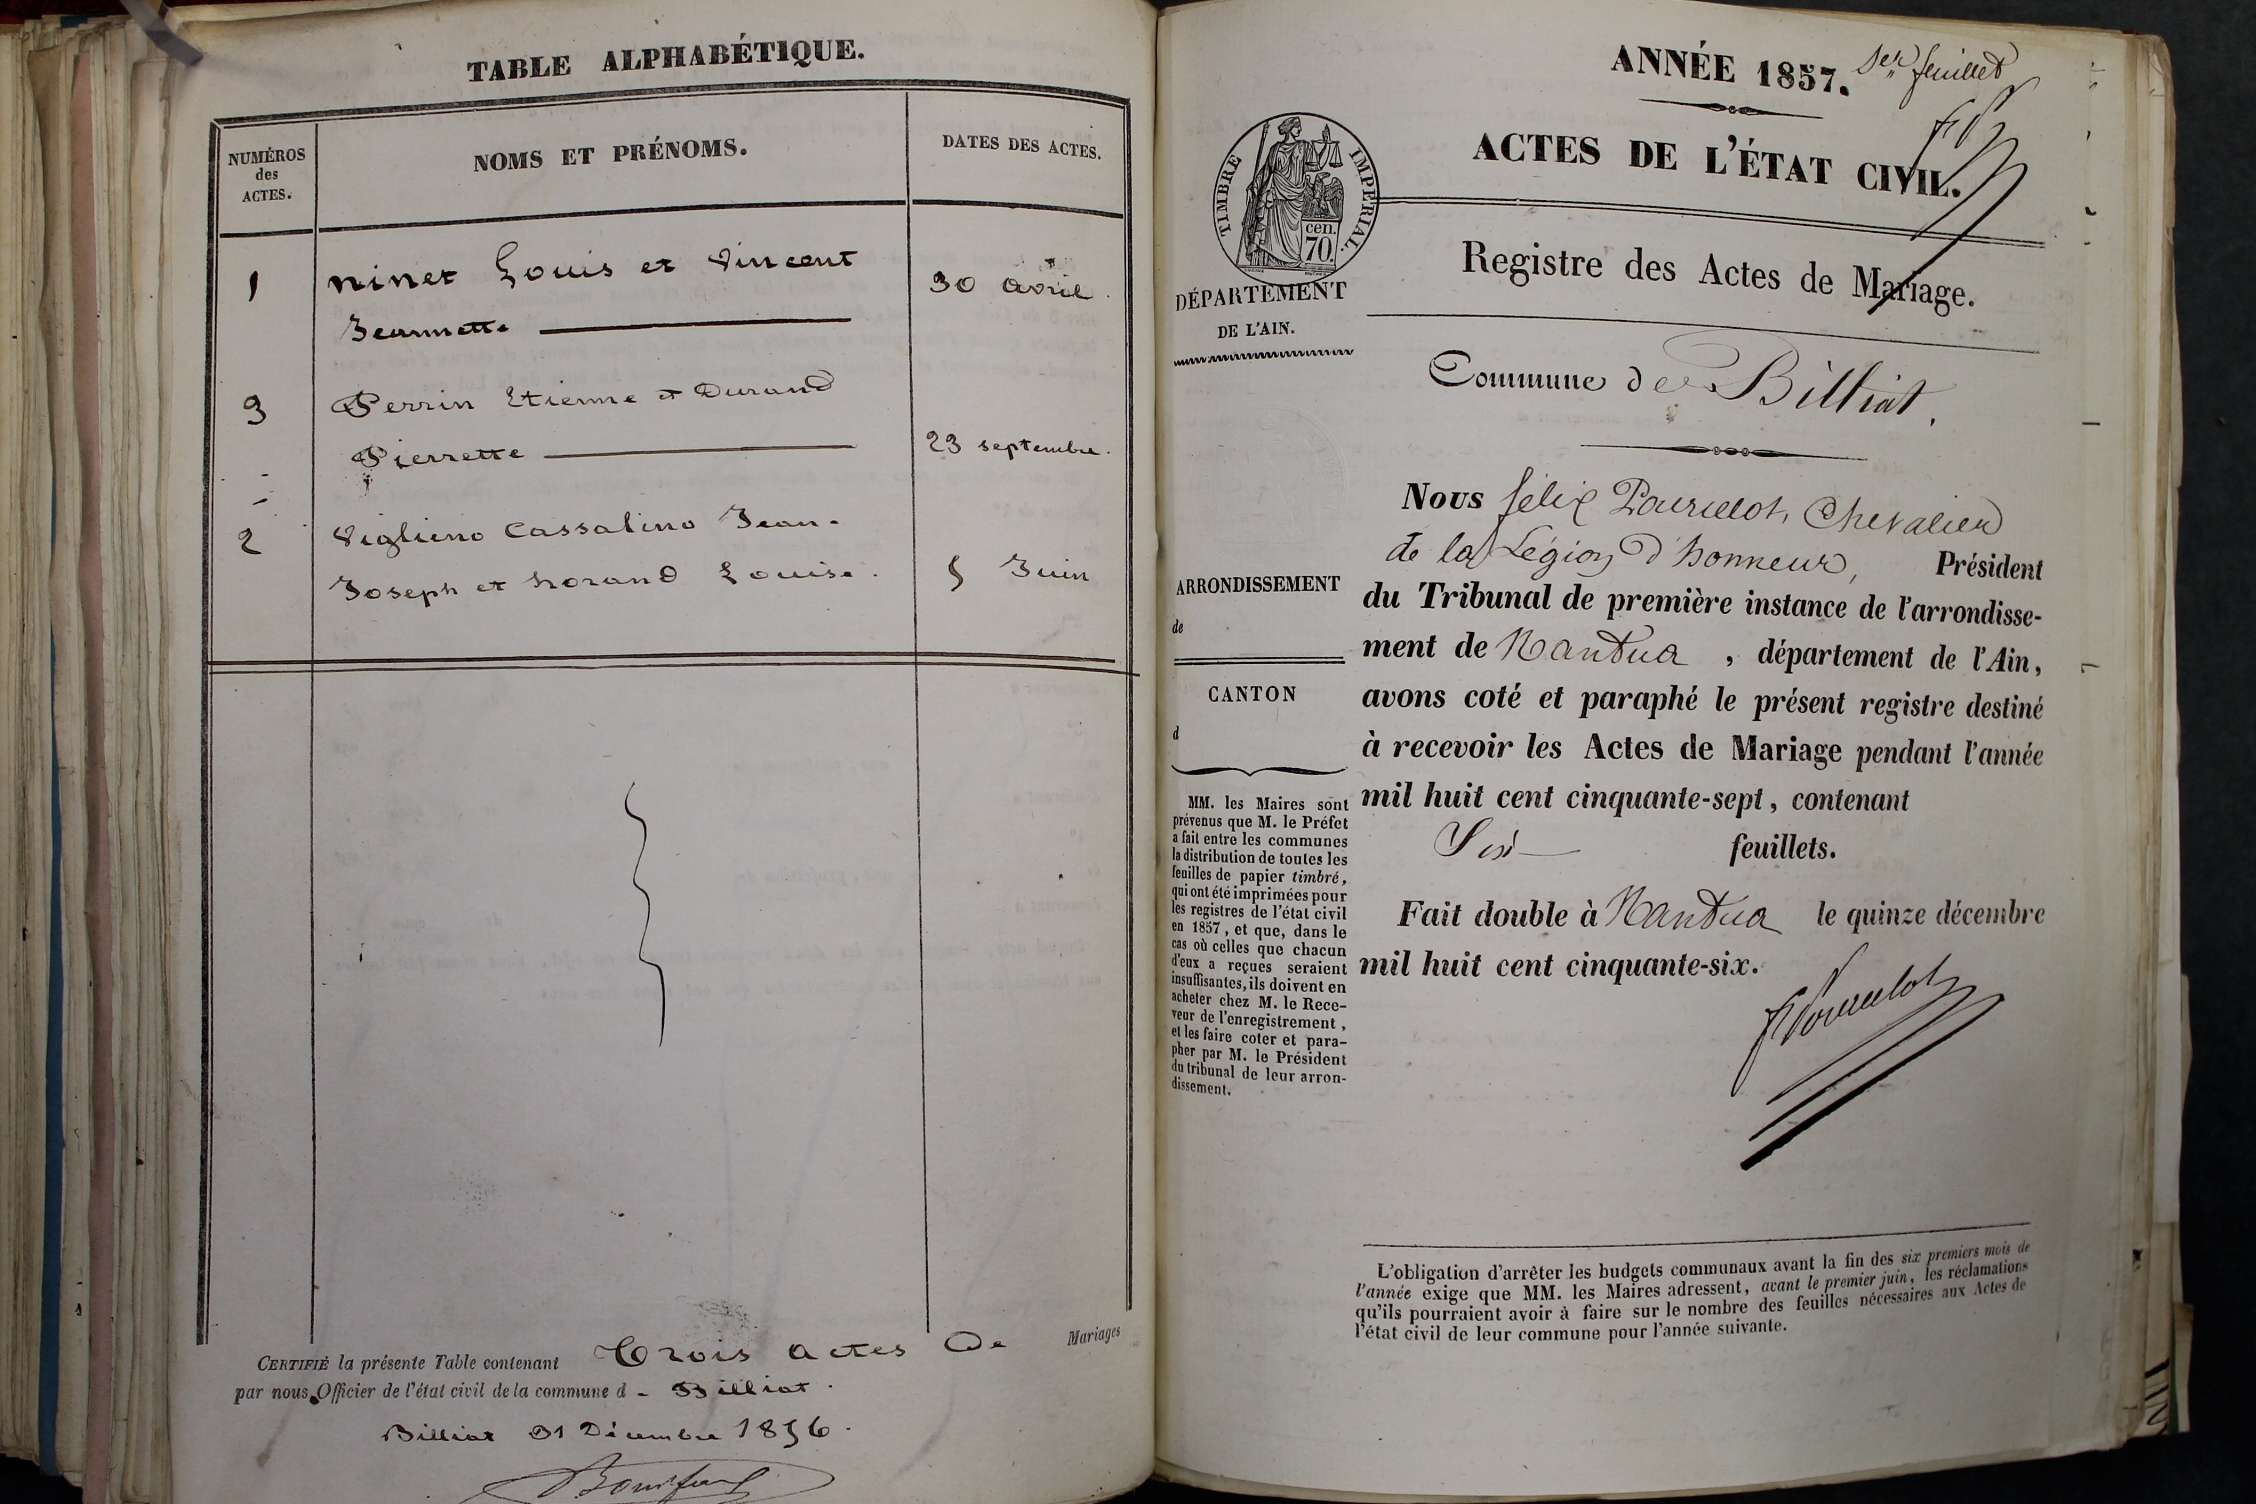 TABLE ALPHABÉTIQUE.
NUMÉROS
des
ACTES.
NOMS ET PRÉNOMS.
DATES DES ACTES.
1
Ninet Louis et Vincent
Jeannette
30 avril.
3
Perrin Etienne et Durand
Pierrette
23 septembre.
2
Viglieno Cassalino Jean-
Joseph et Morand Louise.
5 Juin
CERTIFIÉ la présente Table contenant Trois actes De Mariages
par nous Officier de l'état civil de la commune d - Billiat.
Billiat 31 Décembre 1856.
ANNÉE 1857.
1er feuillet
ACTES DE L'ÉTAT CIVIL.
TIMBRE IMPÉRIAL.
cen.
70.
DÉPARTEMENT
DE L'AIN.
Registre des Actes de Mariage.
Commune de Billiat.
ARRONDISSEMENT
de
CANTON
d
MM. les Maires sont
prévenus que M. le Préfet
a fait entre les communes
la distribution de toutes les
feuilles de papier timbré,
qui ont été imprimées pour
les registres de l'état civil
en 1857, et que, dans le
cas où celles que chacun
d'eux a reçues seraient
insuffisantes, ils doivent en
acheter chez M. le Rece-
veur de l'enregistrement,
et les faire coter et para-
pher par M. le Président
du tribunal de leur arron-
dissement.
Nous félix Pourcelot, Chevalier
de la Légion d'honneur, Président
du Tribunal de première instance de l'arrondisse-
ment de Nantua, département de l'Ain,
avons coté et paraphé le présent registre destiné
à recevoir les Actes de Mariage pendant l'année
mil huit cent cinquante-sept, contenant
Six feuillets.
Fait double à Nantua le quinze décembre
mil huit cent cinquante-six.
L'obligation d'arrêter les budgets communaux avant la fin des six premiers mois de
l'année exige que MM. les Maires adressent, avant le premier juin, les réclamations
qu'ils pourraient avoir à faire sur le nombre des feuilles nécessaires aux Actes de
l'état civil de leur commune pour l'année suivante.